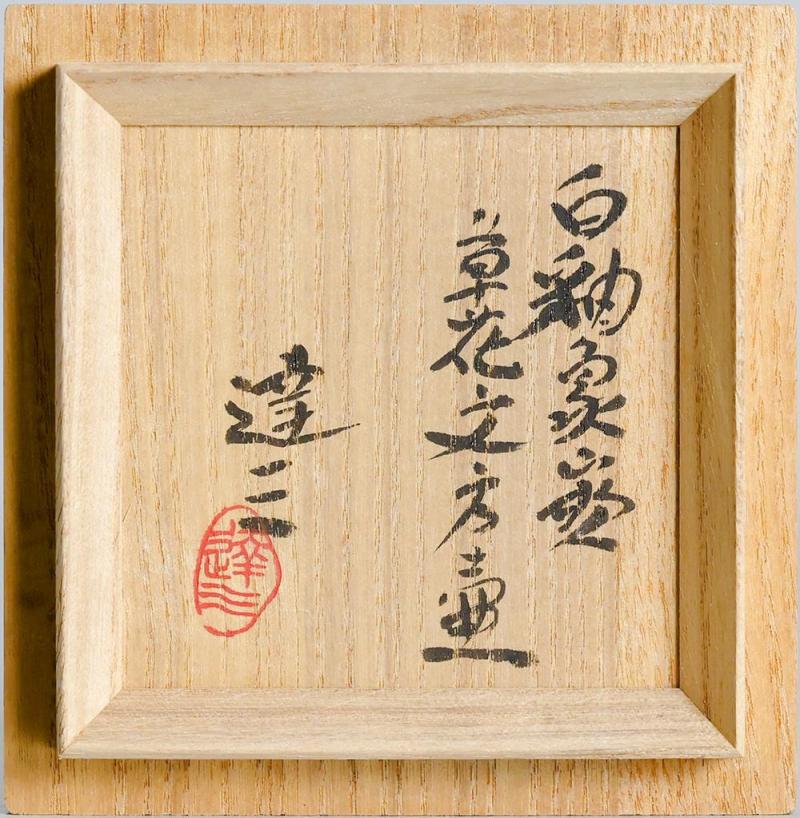 白釉象嵌
草花文方壷
達三
達三